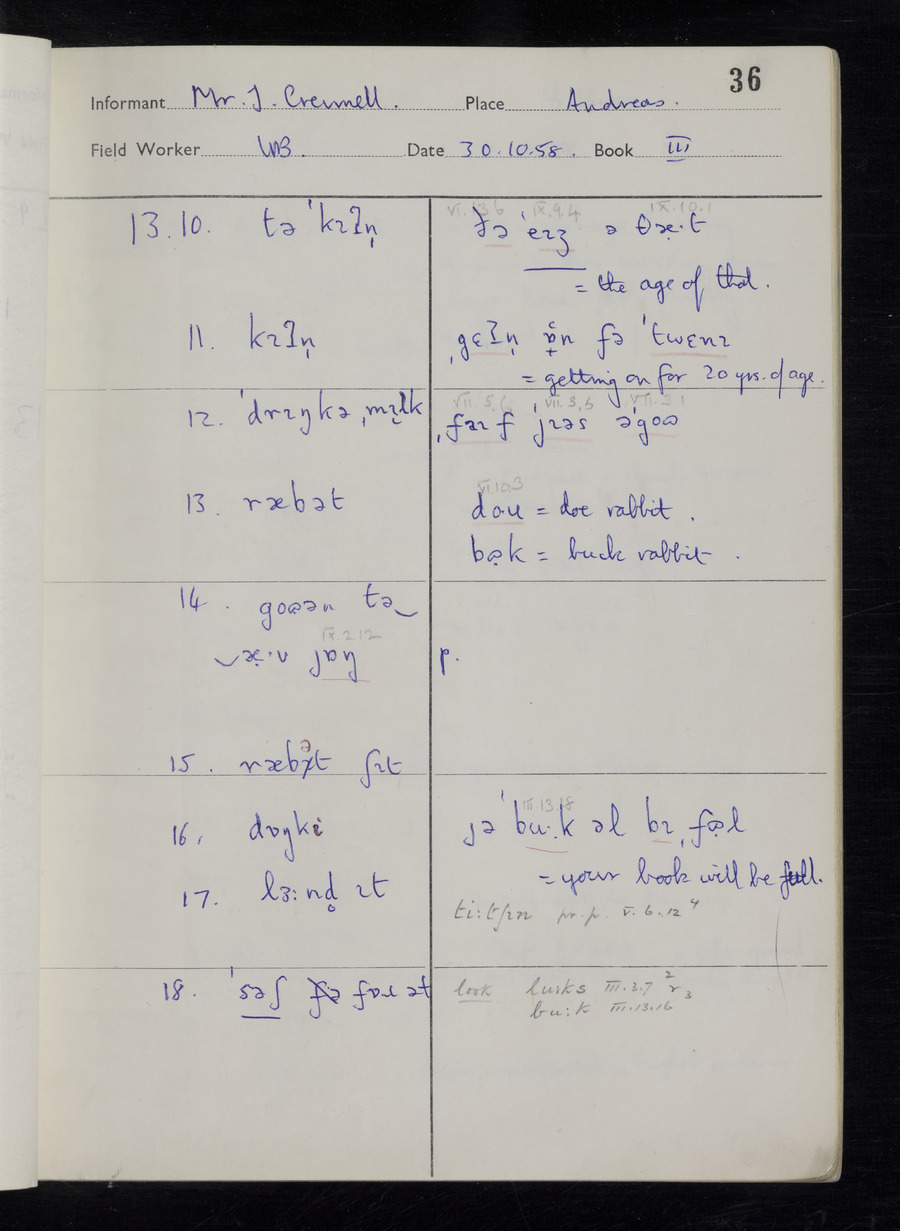 36
Informant Mr. J. Crennell. Place Andreas.
Field Worker WB. Date 30.10.58. Book III
VI.13.6 IX.9.4 IX.10.1
13.10. tə ˈkɪʔn̩
ðə ˈeɪʒ ə ðæ·t
= the age of that.
11. kɪʔn̩
ˌgɛʔn̩ ɒn fə ˈtwɛnɪ
= getting on for 20 yrs. of age.
12. ˈdrɪŋkə ˌmɪlk
VII.5.6 VII.3.5 VII.2.1
ˌfaɪf ˈjɪəs əgoə
VI.10.3
13. ræbət
dou = doe rabbit.
bək = buck rabbit.
14. goən tə
IX.2.12
æ·v jɒŋ
p.
15. ræbət ʃɪt
16. dɒŋki
III.13.18
jə ˈbu·k əl bɪ ˌfəl
= your book will be full.
17. lɜ:nd̥ ɪt
ti:tʃɪn pr.p. V.6.12 4
18. ˈsəʃ fɒɪ ət
look lu:ks III.3.7 2 r 3
bu:k III.13.16